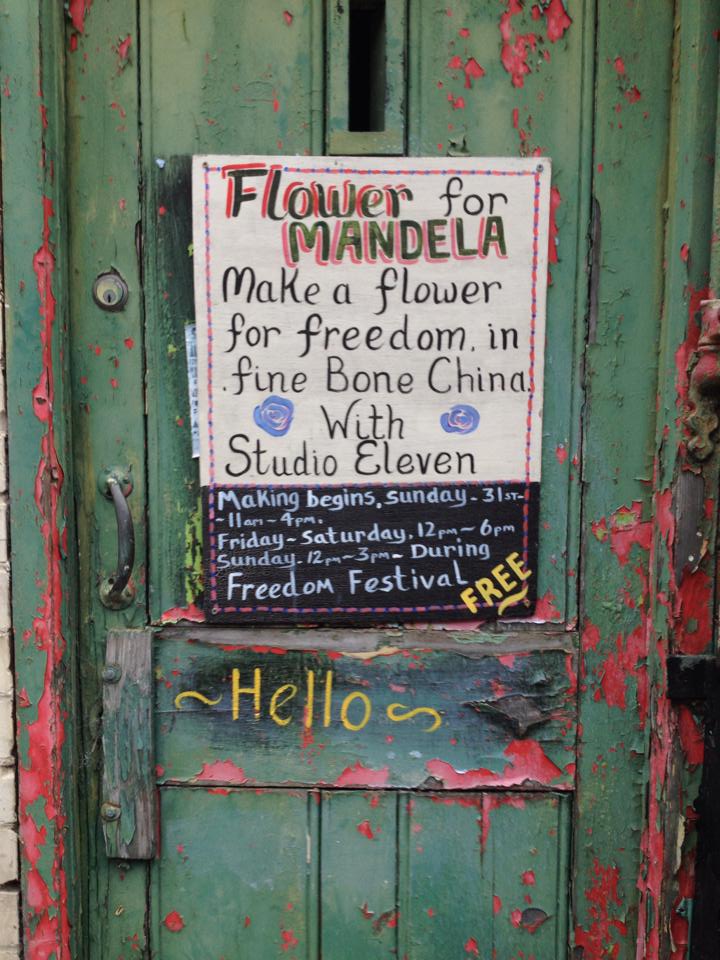 Flower for
MANDELA
Make a flower
for freedom. in
.fine Bone China.
With
Studio Eleven
Making begins. sunday - 31st-
~11am~4pm.
Friday~Saturday. 12pm~6pm
Sunday. 12pm~3pm~ During
Freedom Festival
FREE
~Hello~